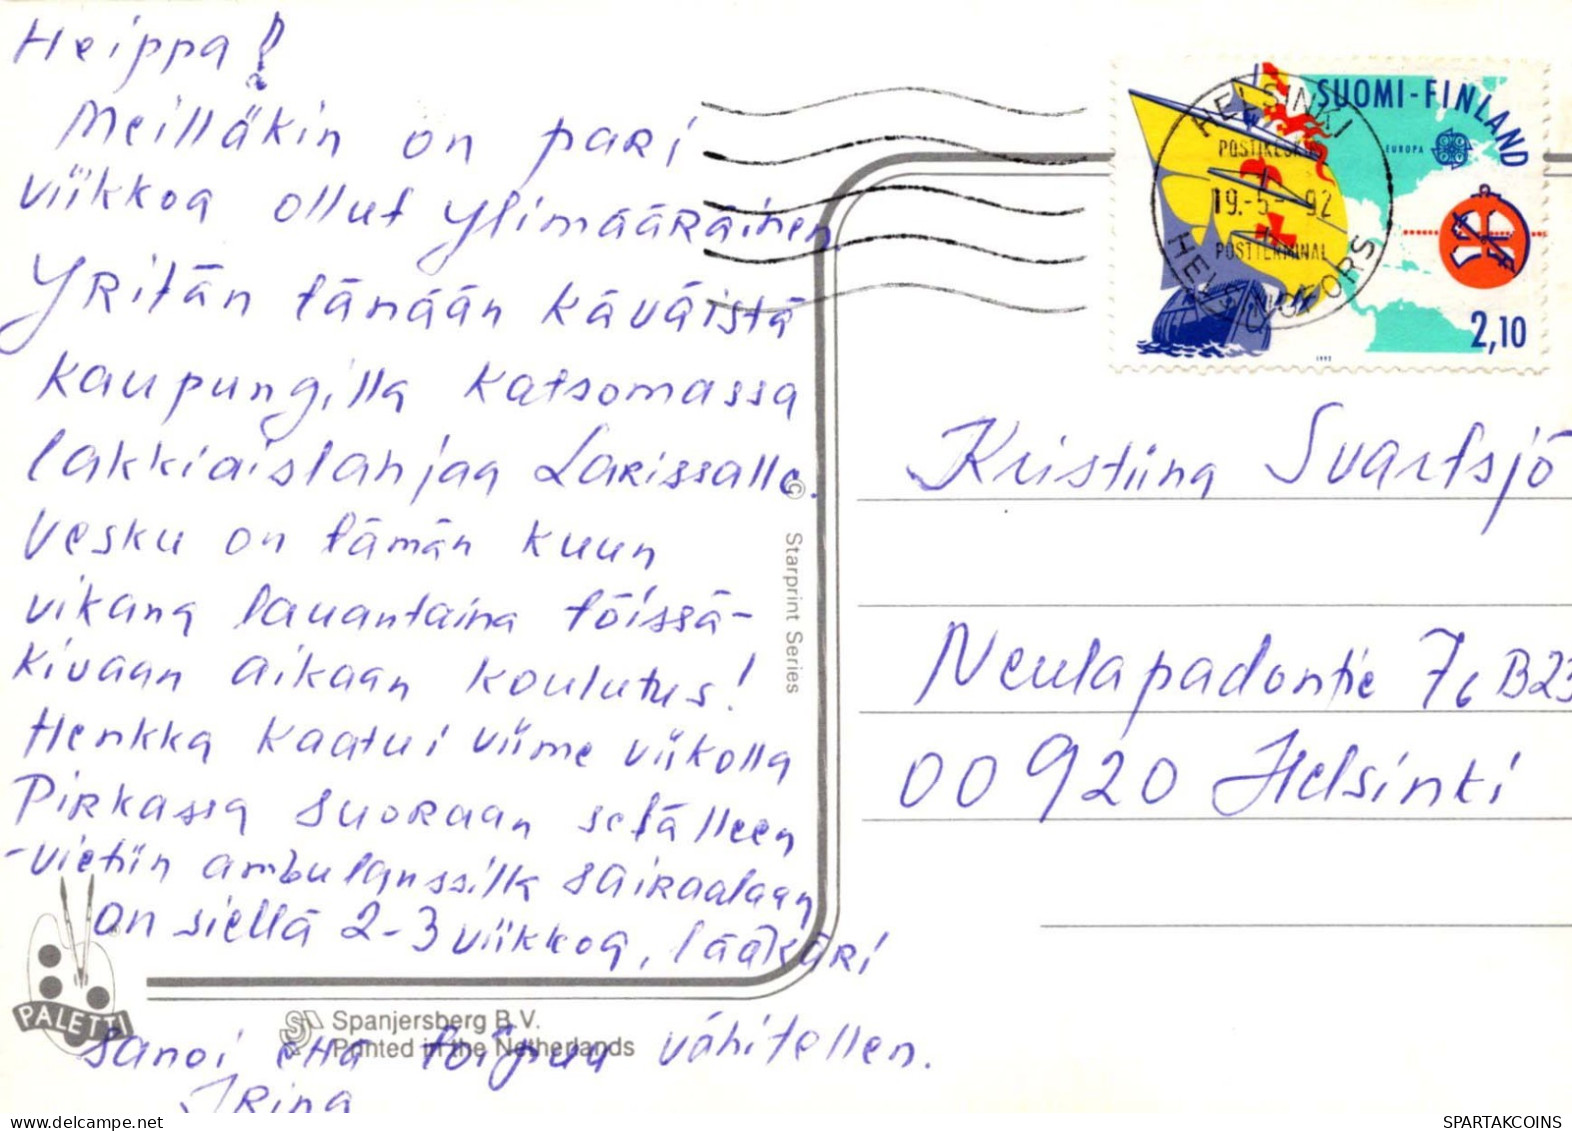 Heippa!
Meilläkin on pari
viikkoa ollut ylimääräinen
Yritän tänään käväistä
kaupungilla katsomassa
lakkiaislahjaa Larissalle.
Vesku on tämän kuun
vikana lauantaina töissä-
kivaan aikaan koulutus!
Henkka kaatui viime viikolla
Pirkassa suoraan selälleen
-vietiin ambulanssilla sairaalaan
on siellä 2-3 viikkoa, lääkäri
sanoi että toipuu vähitellen.
Irina
PALETTI
Spanjersberg B.V.
Printed in the Netherlands
© Starprint Series
SUOMI-FINLAND
EUROPA
2,10
1992
HELSINKI
POSTIKESKUS
19.-5-92
POSTTERMINAL
HELSINGFORS
Kristiina Svartsjö
Neulapadontie 7c B23
00920 Helsinki
delcampe.net
SPARTAKCOINS